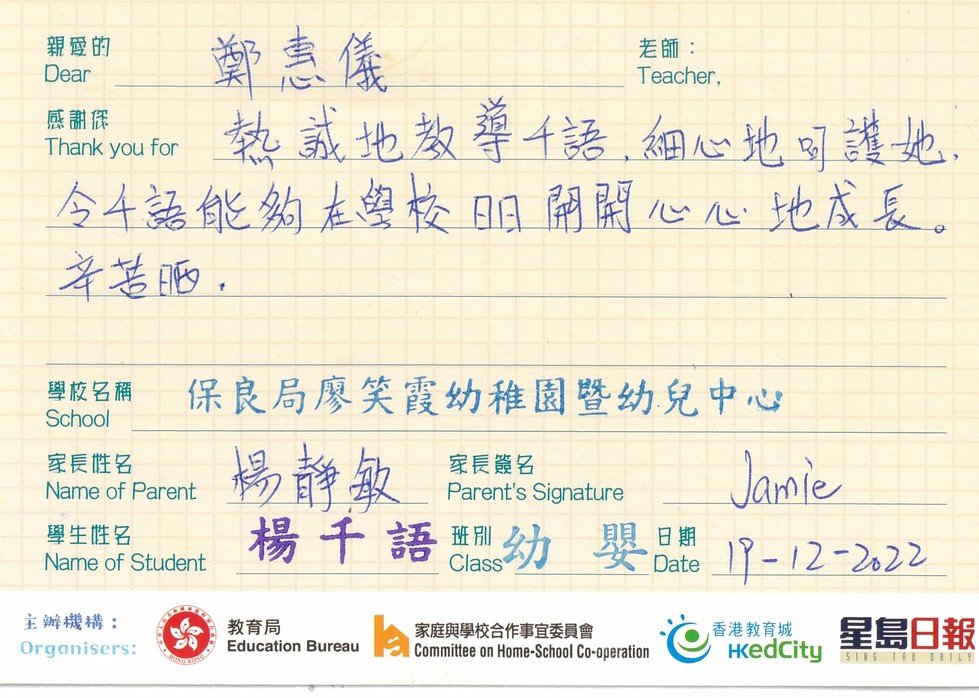 親愛的 鄭惠儀 老師：
Dear Teacher,
感謝您 熱誠地教導千語，細心地呵護她，
Thank you for
令千語能夠在學校日日開開心心地成長。
辛苦晒．
學校名稱 保良局廖笑霞幼稚園暨幼兒中心
School
家長姓名 楊靜敏 家長簽名 Jamie
Name of Parent Parent's Signature
學生姓名 楊千語 班別 幼嬰 日期 19-12-2022
Name of Student Class Date
主辦機構： 教育局 家庭與學校合作事宜委員會 香港教育城 星島日報
Organisers: HONG KONG Education Bureau Committee on Home-School Co-operation HKedCity SING TAO DAILY